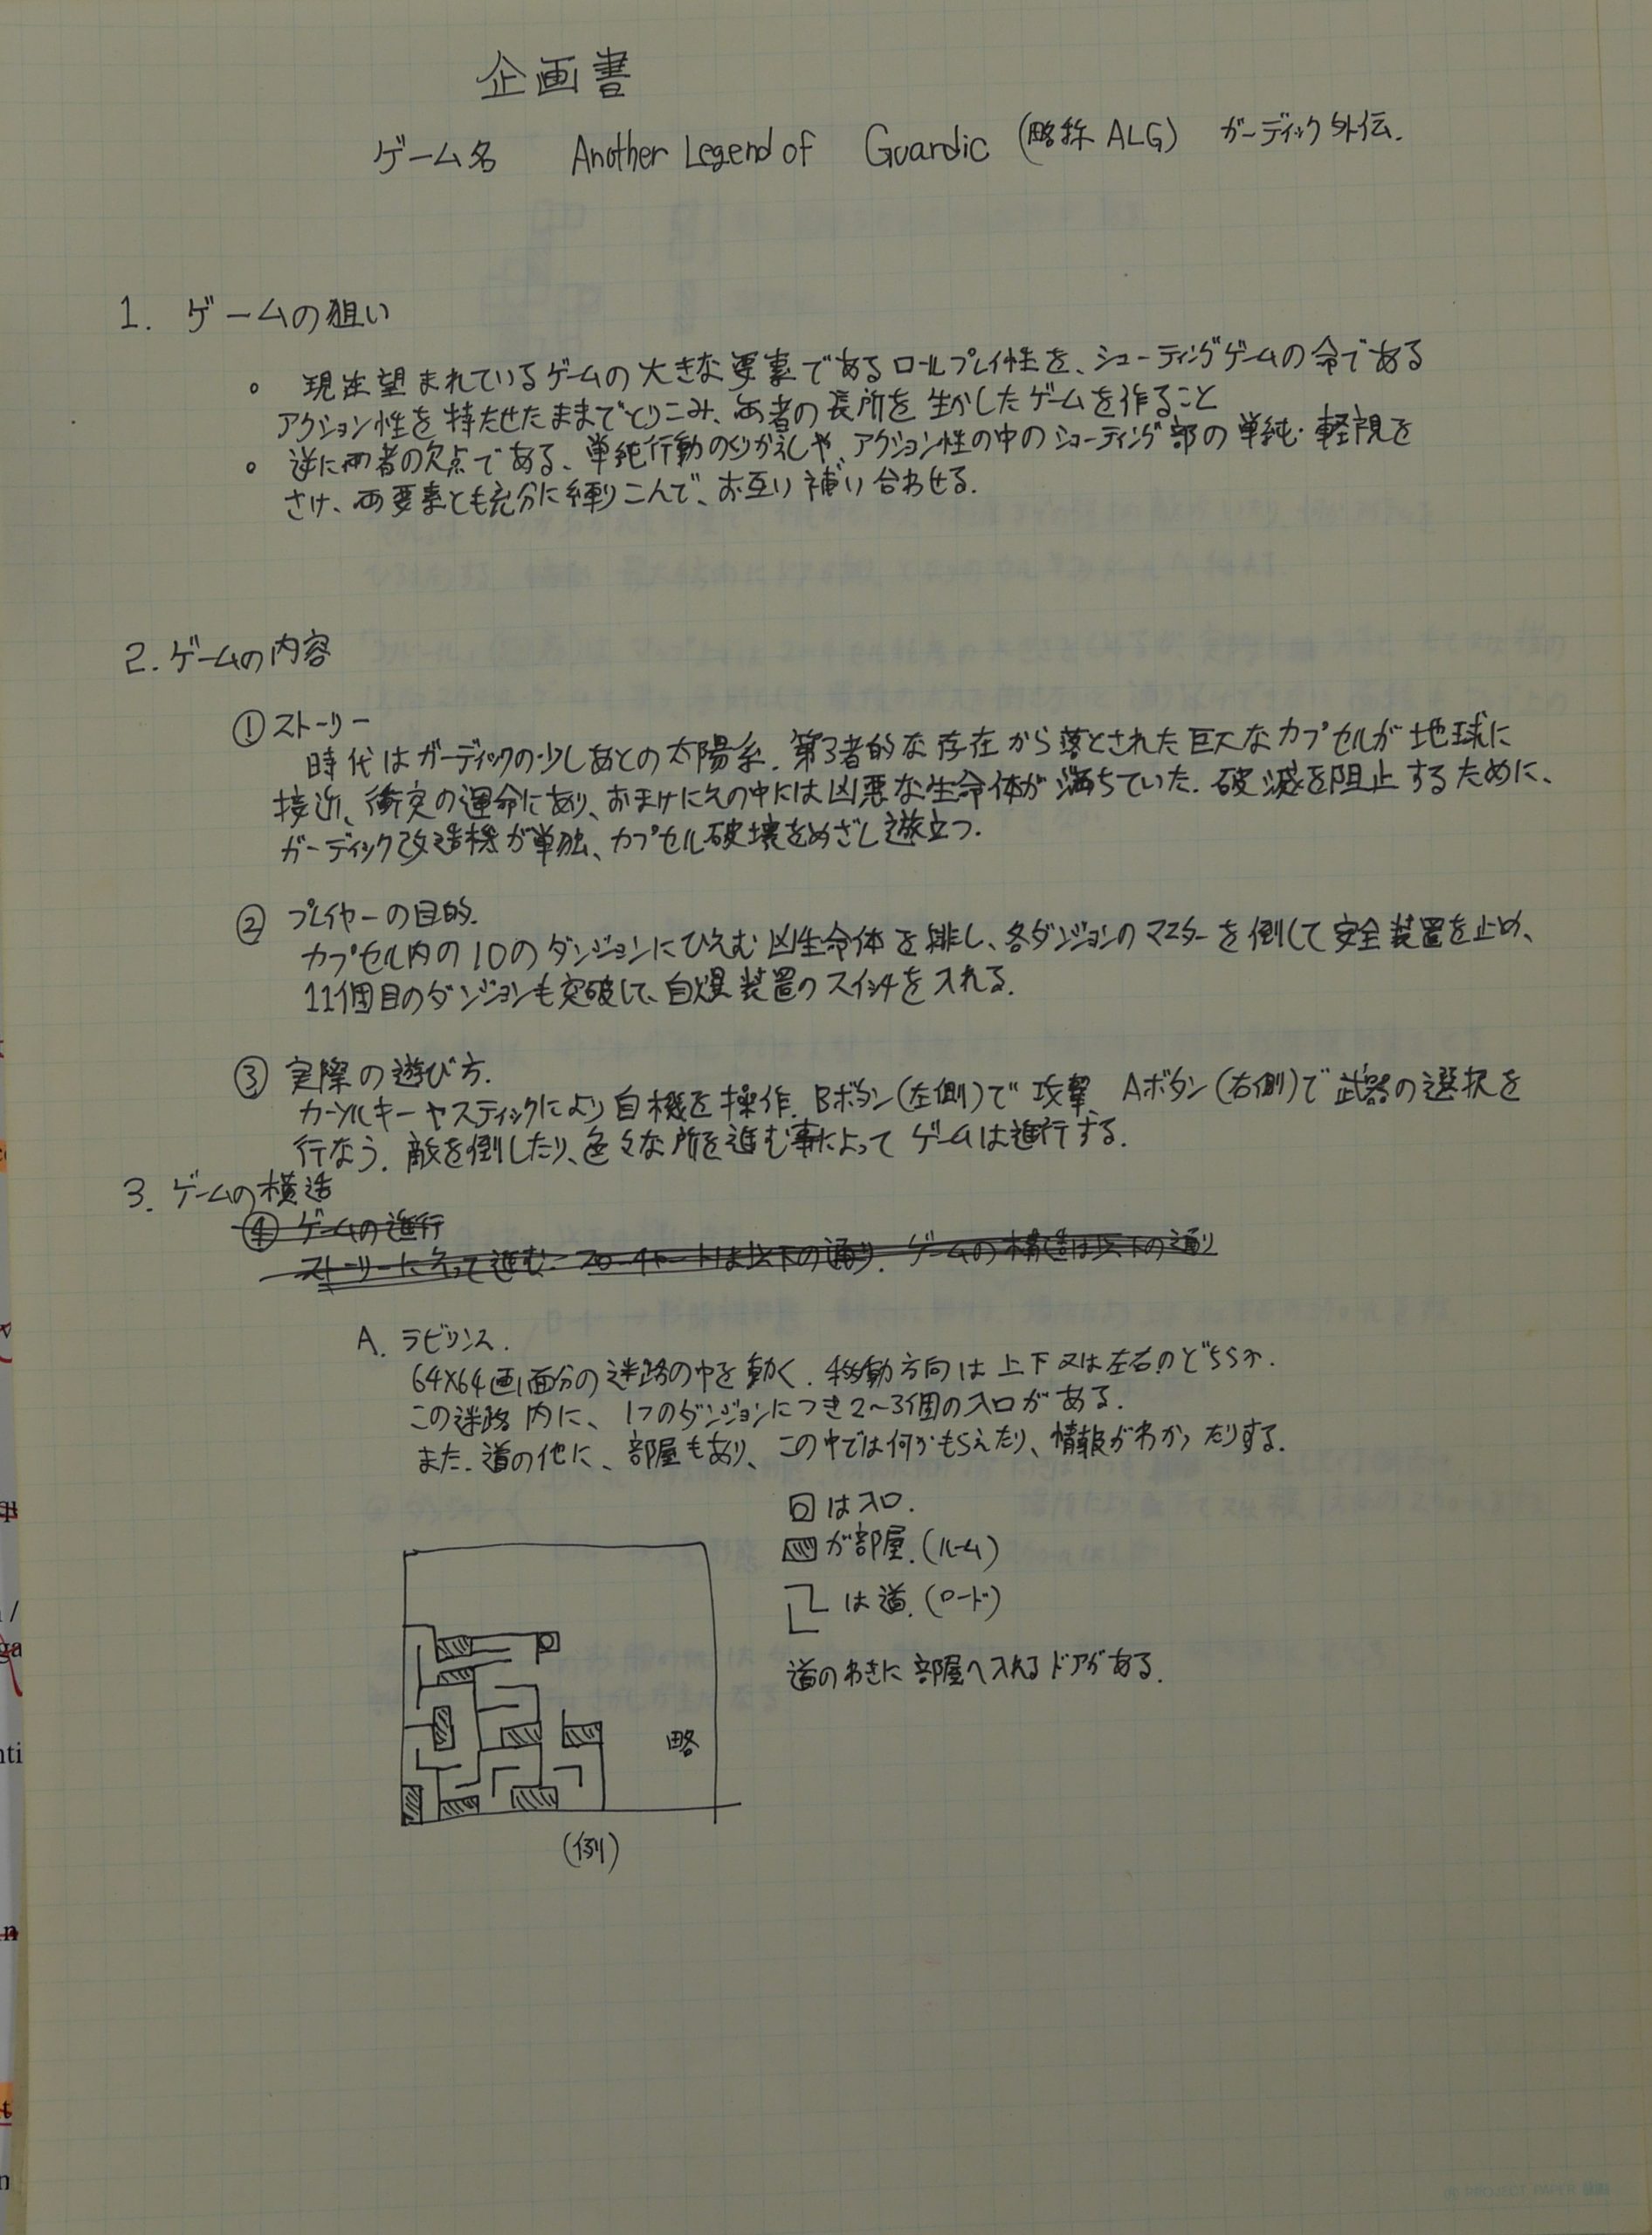 企画書
ゲーム名 Another Legend of Guardic (略称 ALG) ガーディック外伝.
1. ゲームの狙い
○ 現在望まれているゲームの大きな要素であるロールプレイ性を、シューティングゲームの命である
アクション性を持たせたままでとりこみ、両者の長所を生かしたゲームを作ること
○ 逆に両者の欠点である、単純行動のくりかえしや、アクション性の中のシューティング部の単純・軽視を
さけ、両要素とも充分に練りこんで、お互い補い合わせる.
2. ゲームの内容
① ストーリー
時代はガーディックの少しあとの太陽系. 第3者的な存在から落とされた巨大なカプセルが地球に
接近、衝突の運命にあり、おまけにその中には凶悪な生命体が満ちていた. 破滅を阻止するために、
ガーディック改造機が単独、カプセル破壊をめざし遊立つ.
② プレイヤーの目的.
カプセル内の10のダンジョンにひそむ凶生命体を排し、各ダンジョンのマスターを倒して安全装置を止め、
11個目のダンジョンも突破して、自爆装置のスイッチを入れる.
③ 実際の遊び方.
カーソルキーやスティックにより自機を操作. Bボタン(左側)で攻撃、Aボタン(右側)で武器の選択を
行なう. 敵を倒したり、色々な所を進む事によってゲームは進行する.
3. ゲームの構造
④ ゲームの進行
ストーリーにそって進む. フローチャートは以下の通り. ゲームの構造は以下の通り
A. ラビリンス.
64×64画面分の迷路の中を動く. 移動方向は上下又は左右のどちらか.
この迷路内に、1つのダンジョンにつき2〜3個の入口がある.
また、道の他に、部屋もあり、この中では何かもらえたり、情報がわかったりする.
は入口.
が部屋.(ルーム)
は道.(ロード)
道のわきに部屋へ入れるドアがある.
略
(例)